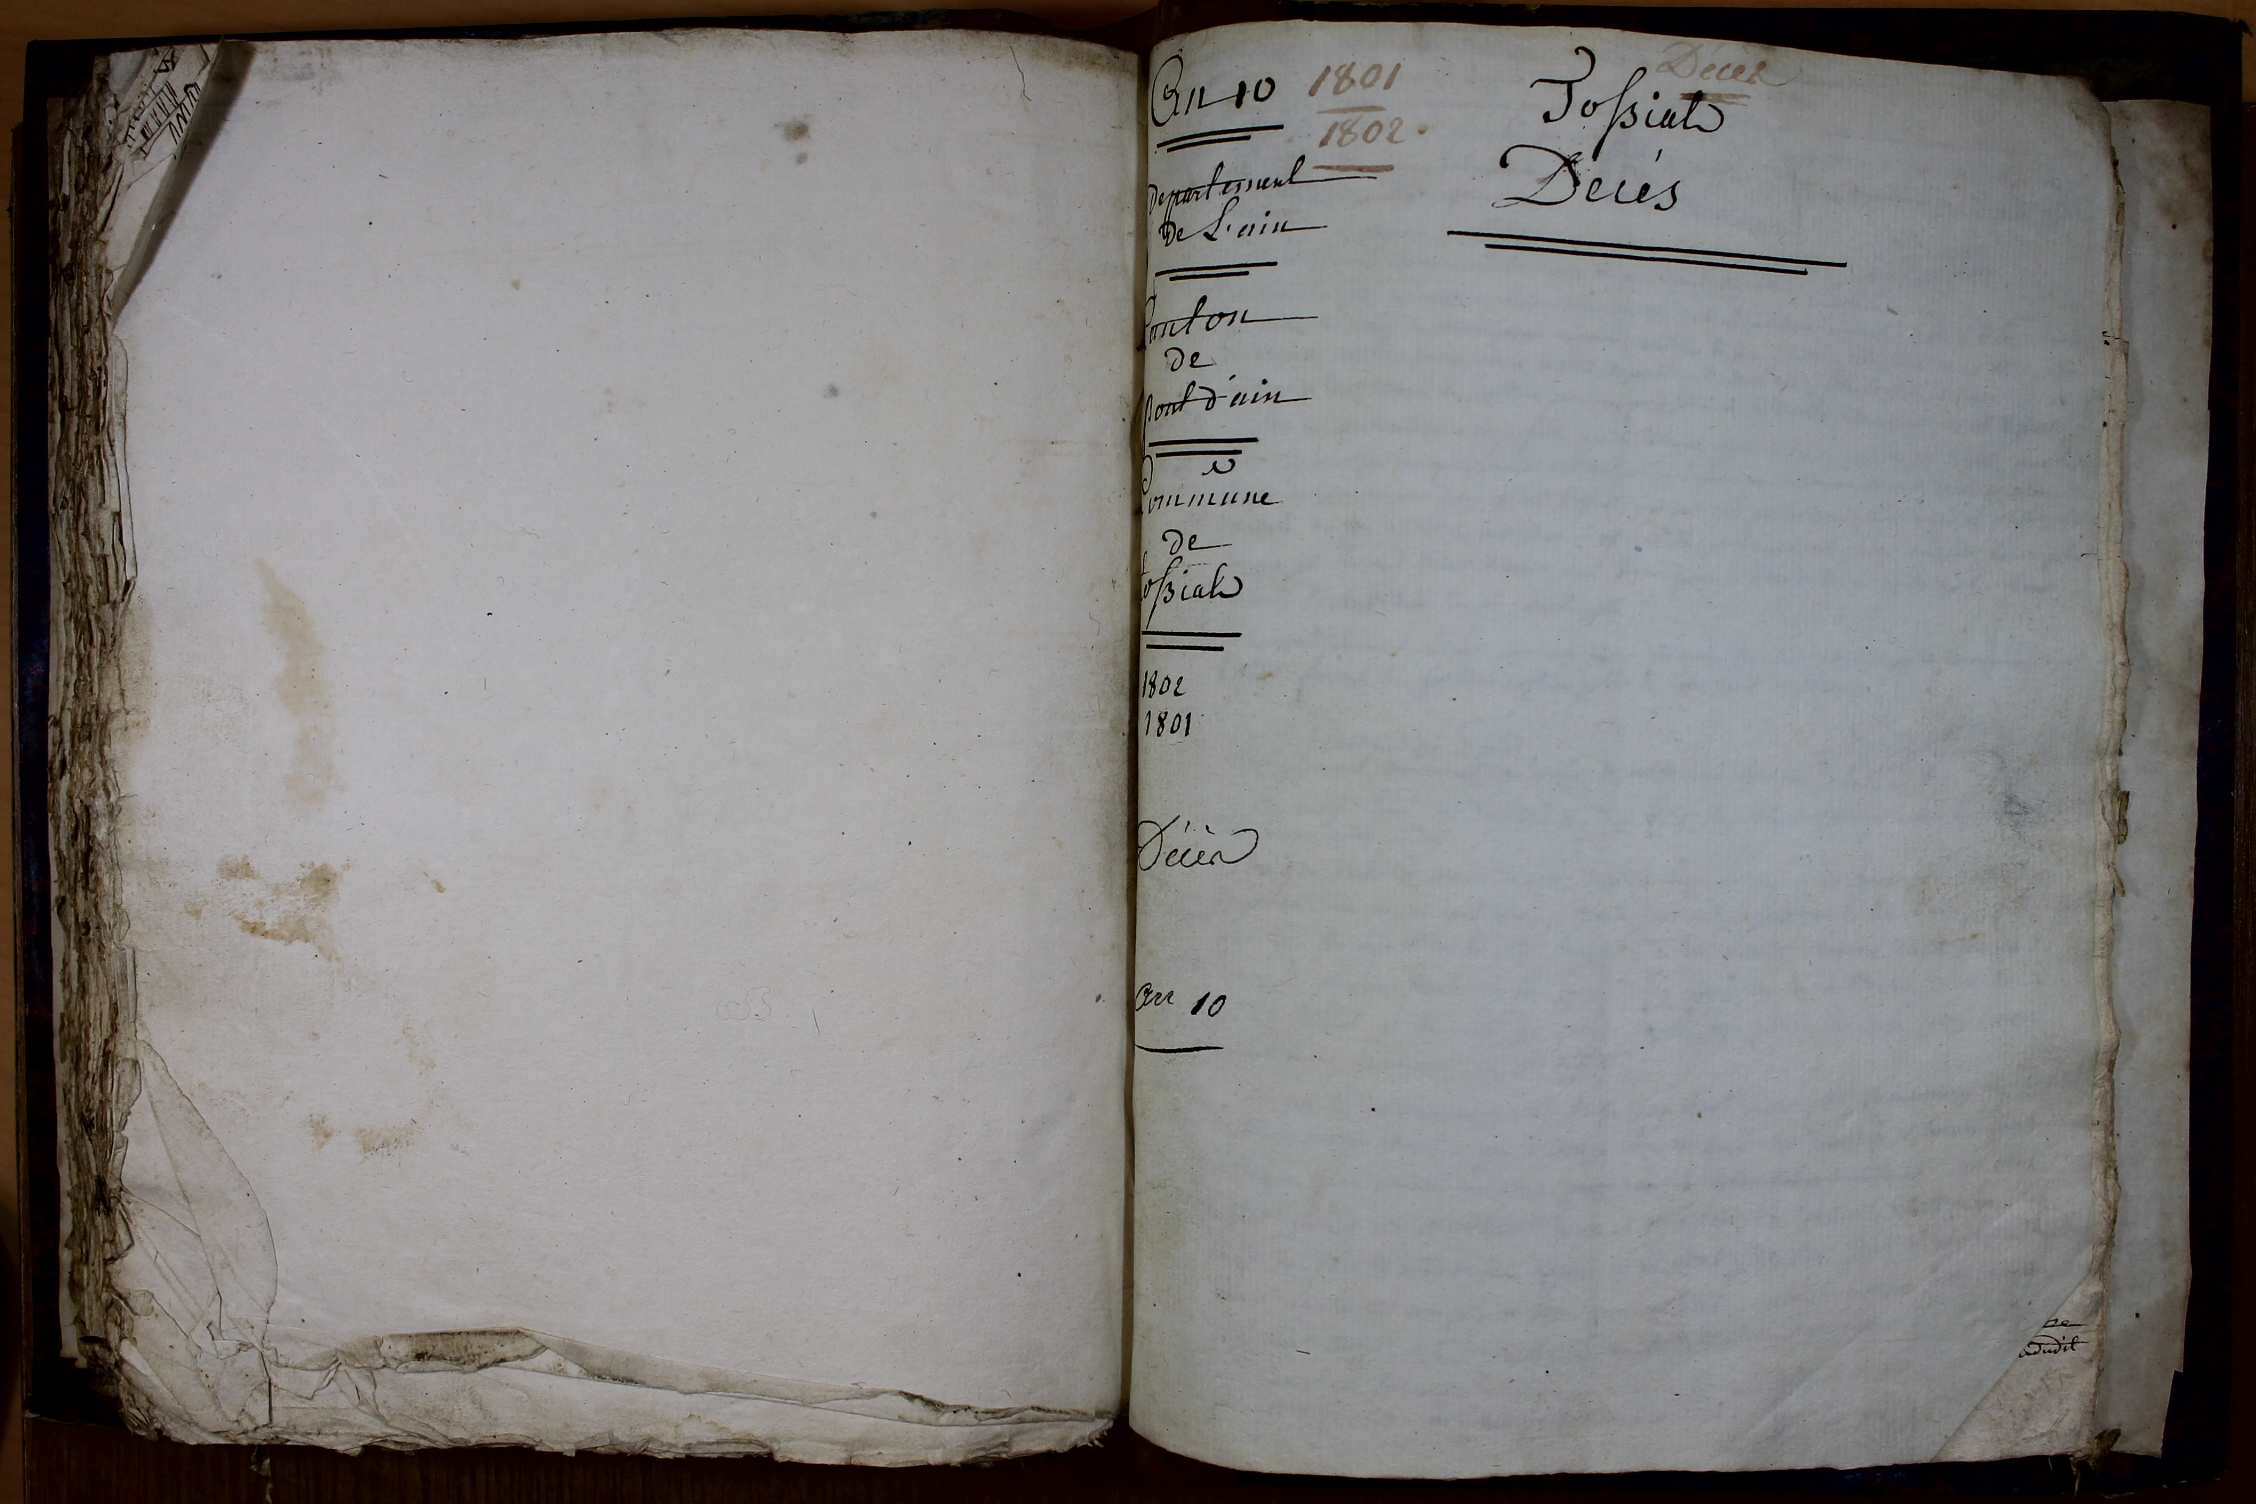 An 10
1801
1802
Département
De L'ain
Canton
de
pont d'ain
Commune
de
tossiat
1802
1801
Décès
an 10
Décès
Tossiat
Décés
dudit